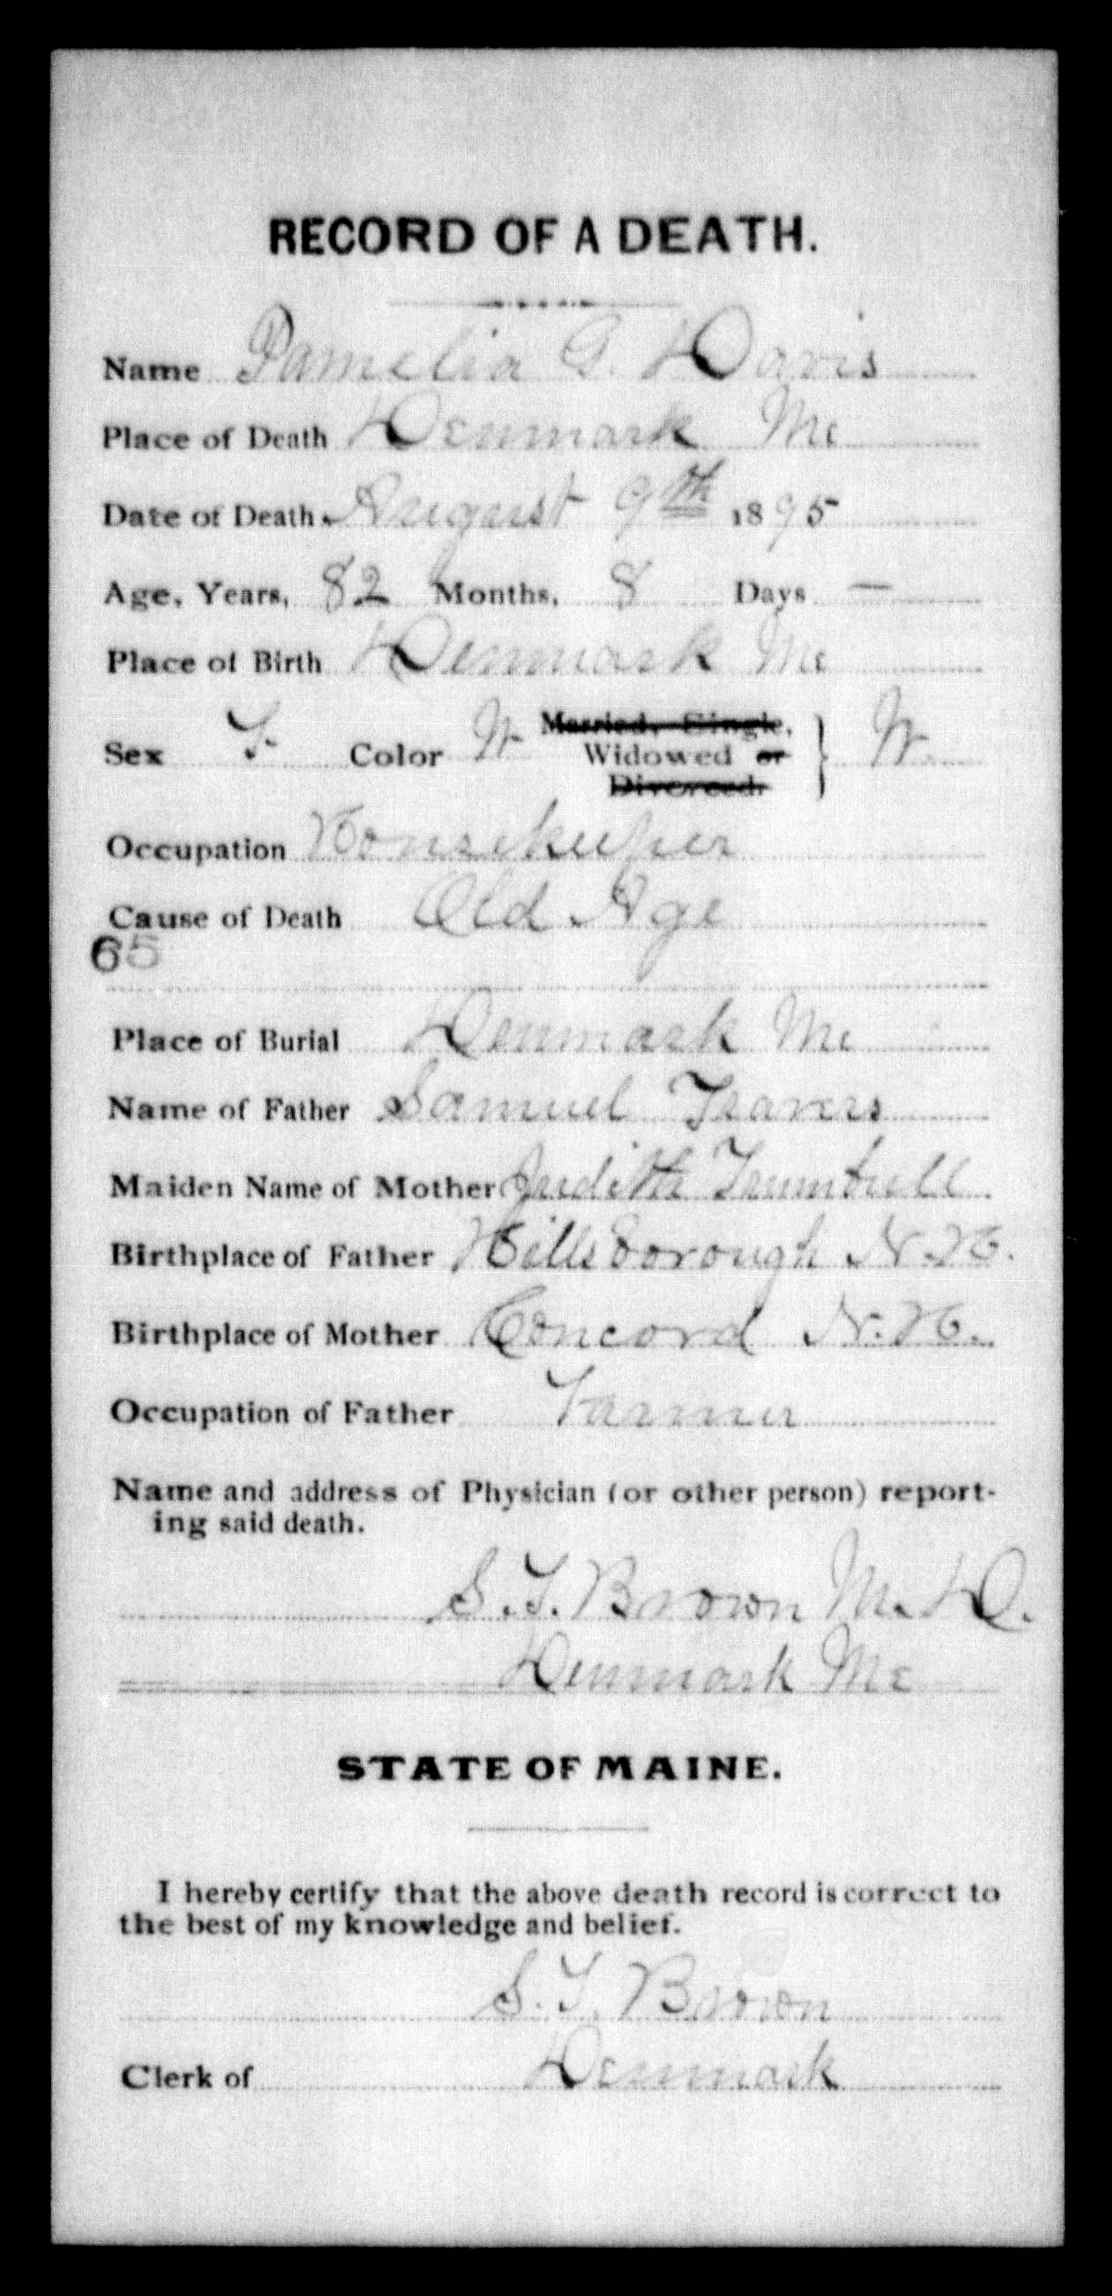 RECORD OF A DEATH.
Name Pamelia G. Davis
Place of Death Denmark Me
Date of Death August 9th 1895
Age, Years, 82 Months, 8 Days —
Place of Birth Denmark Me
Sex F. Color W Married, Single, Widowed or Divorced. } W.
Occupation Housekeeper
Cause of Death Old Age
65
Place of Burial Denmark Me
Name of Father Samuel Travers
Maiden Name of Mother Judith Trumbull
Birthplace of Father Hillsborough N.H.
Birthplace of Mother Concord N.H.
Occupation of Father Farmer
Name and address of Physician (or other person) report-
ing said death.
S.T. Brown M.D.
Denmark Me
STATE OF MAINE.
I hereby certify that the above death record is correct to
the best of my knowledge and belief.
S.T. Brown
Clerk of Denmark